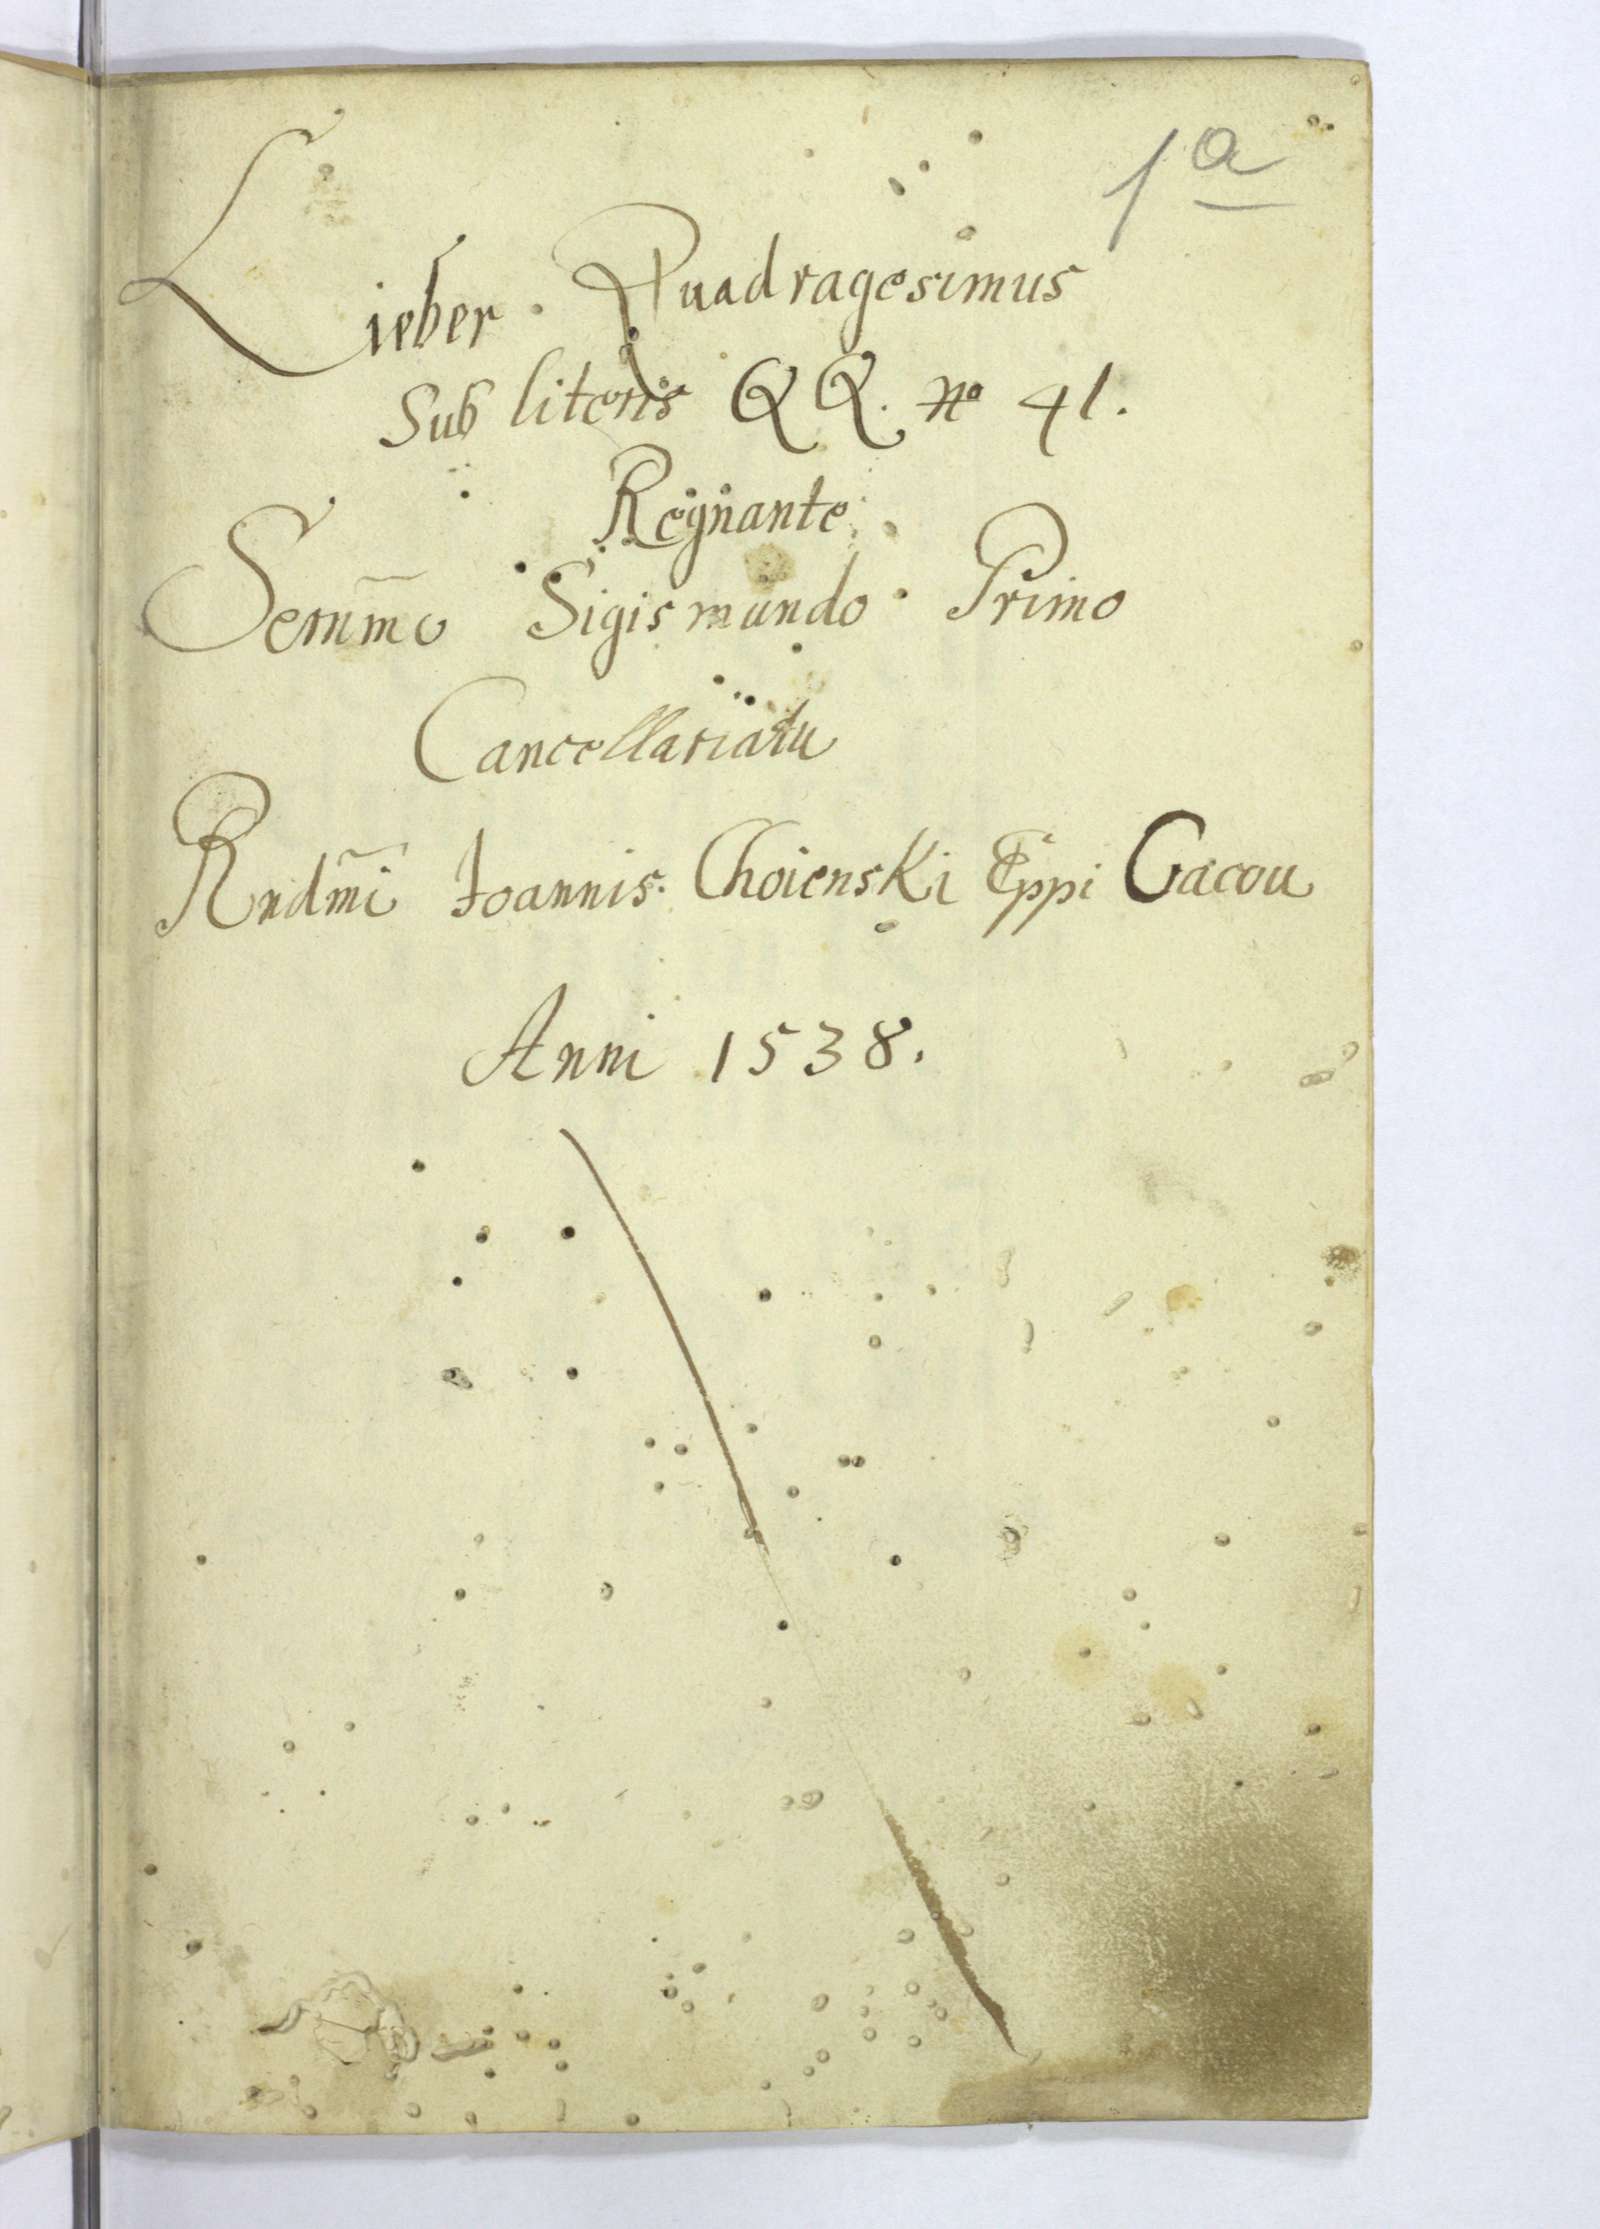 1a
Lieber. Quadragesimus
Sub literis QQ. No 41.
Regnante
Serñmo Sigismundo Primo
Cancellariatu
Rndm̃i Joannis Choienski Eppi Cracou
Anni 1538.